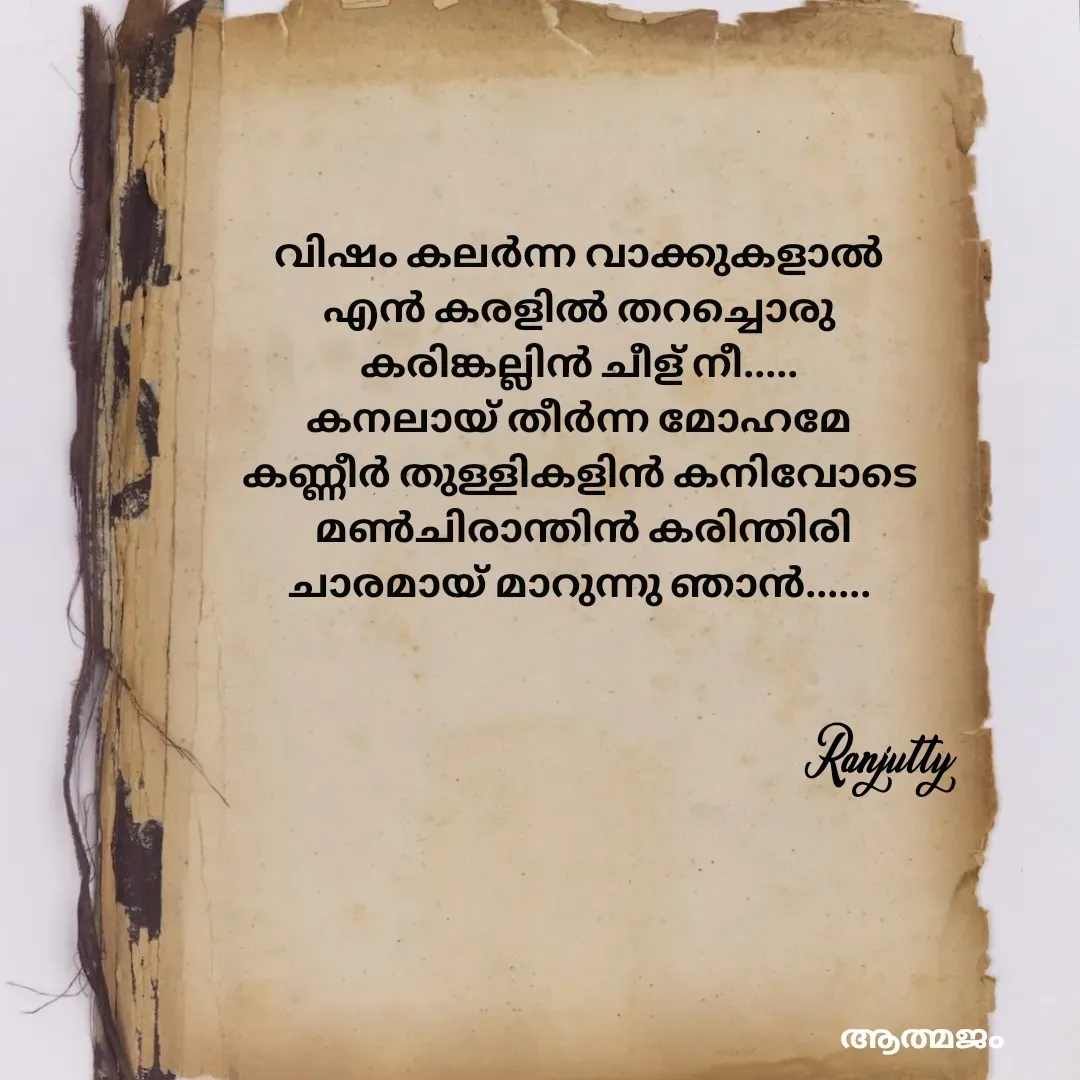 വിഷം കലർന്ന വാക്കുകളാൽ
എൻ കരളിൽ തറച്ചൊരു
കരിങ്കല്ലിൻ ചീള് നീ.....
കനലായ് തീർന്ന മോഹമേ
കണ്ണീർ തുള്ളികളിൻ കനിവോടെ
മൺചിരാന്തിൻ കരിന്തിരി
ചാരമായ് മാറുന്നു ഞാൻ......
Ranjutty
ആത്മജം